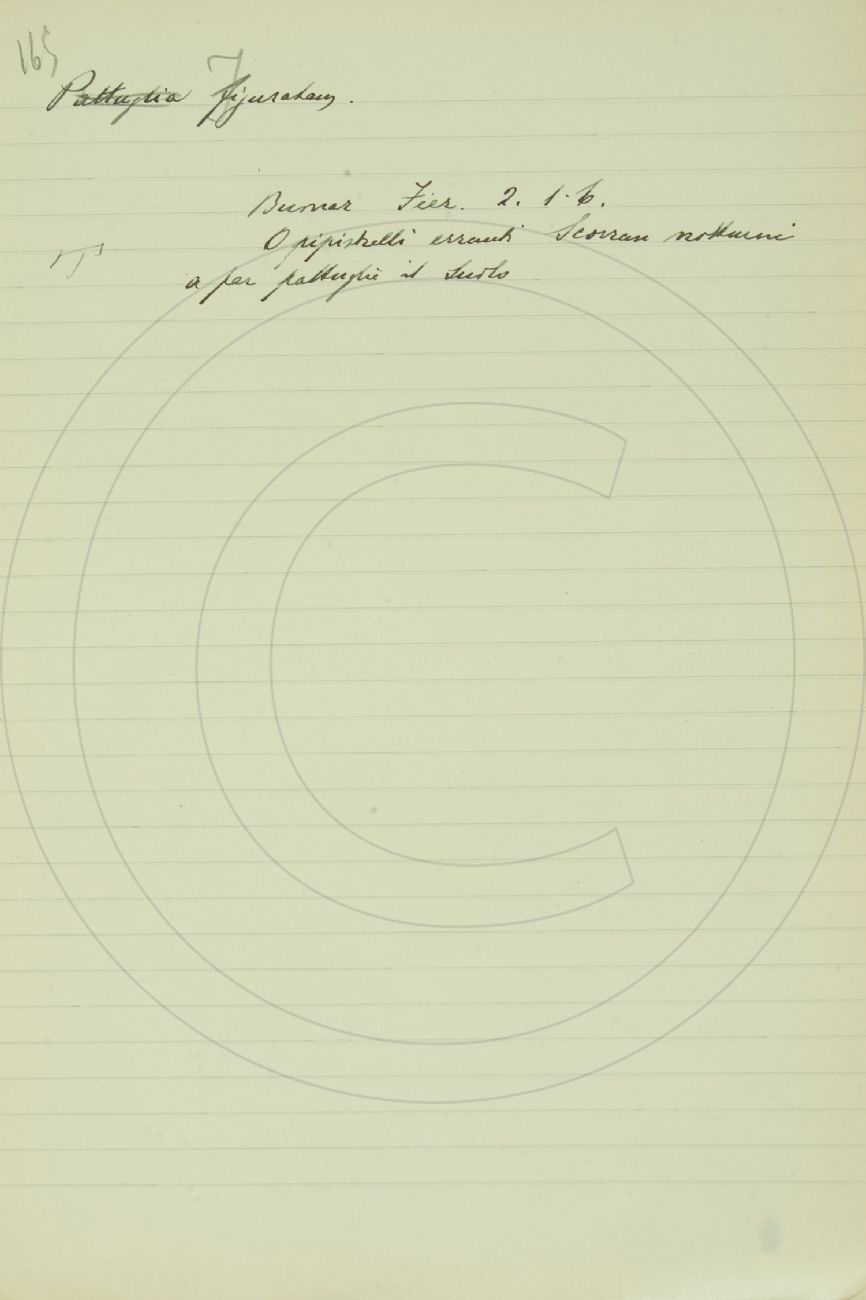 165
Pattuglia figuratam.
Buonar Fier. 2. 1. 6.
O pipistrelli erranti Scorran notturni
a per pattuglie il suolo